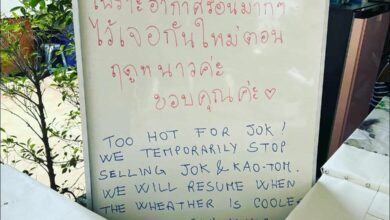 เพราะอากาศร้อนมากๆ
ไว้เจอกันใหม่ตอน
ฤดูหนาวค่ะ
ขอบคุณค่ะ♡
TOO HOT FOR JOK!
WE TEMPORARILY STOP
SELLING JOK & KAO-TOM.
WE WILL RESUME WHEN
THE WHEATHER IS COOLER